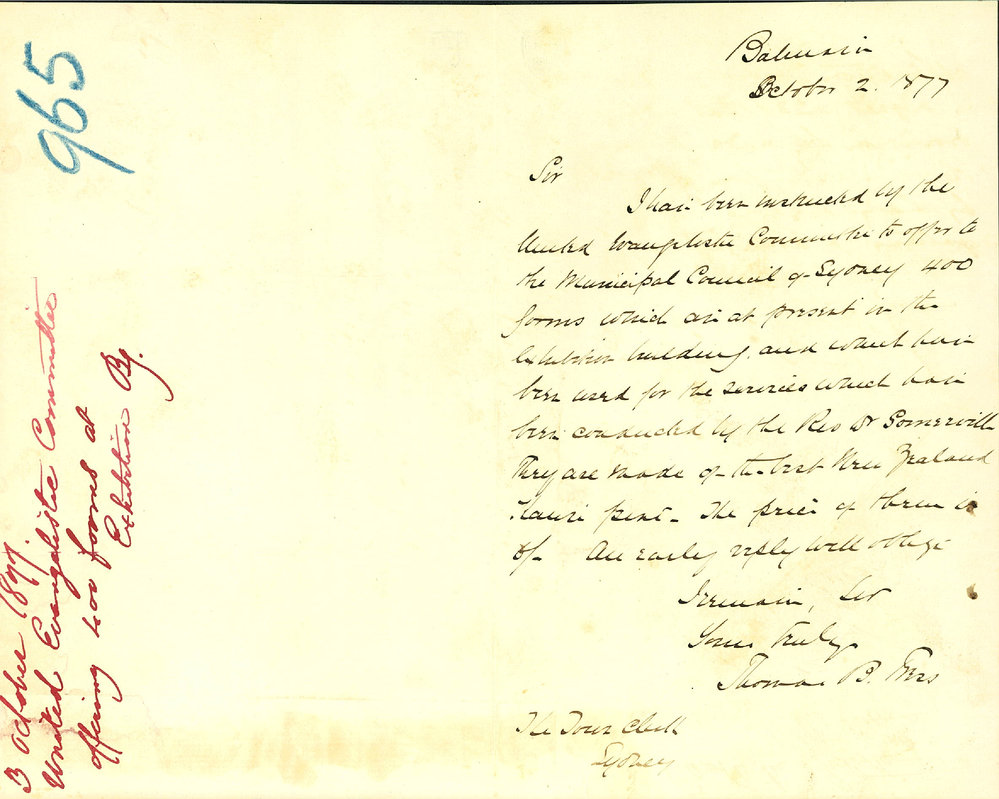 965
3 October 1877.
United Evangelistic Committee
offering 400 forms at
Exhibition Bg.
Balmain
October 2. 1877
Sir
I have been instructed by the
United Evangelistic Committee to offer to
the Municipal Council of Sydney 400
forms which are at present in the
Exhibition building, and which have
been used for the services which have
been conducted by the Rev Dr Somerville
They are made of the best New Zealand
Kauri pine - The price of them is
An early reply will oblige
I remain, Sir
Yours truly
Thomas B.
The Town Clerk
Sydney